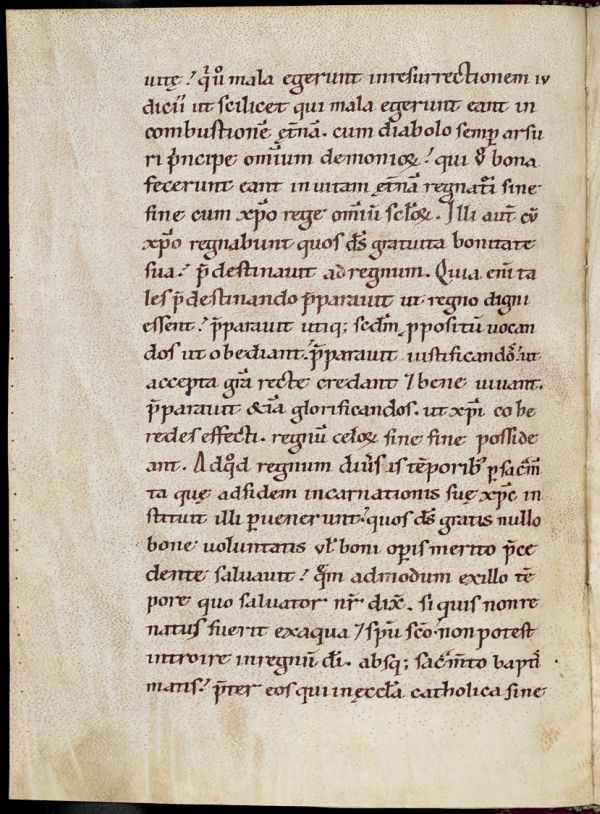 uitę? q̄ uͦ mala egerunt inresurrectionem iu
dicii ut scilicet qui mala egerunt eant in
combustionē ęt̄nā. cum diabolo semꝑ arsu
ri p̄ncipe omīum demonioꝝ? qui ū bona
fecerunt eant in uitam ęt̄nā regnat̄i sine
fine cum xp̄o rege omīū sc̄loꝝ. Illi aut̄ cū
xp̄o regnabunt quos d̄s gratuita bonitate
sua? p̄destinauit ad regnum. Quia enī ta
les p̄destinando p̄parauit ut regno digni
essent? p̄parauit utiq; sed̄m ꝓpositū uocan
dos ut obediant. p̄parauit iustificandos? ut
accepta gr̄a recte credant ⁊ bene uiuant.
p̄parauit &iā glorificandos. ut xp̄i cohe
redes effecti. regnū celoꝝ sine fine posside
ant. Ad qd̄ regnum diūsis tēporib; ꝑ sacm̄
ta quę ad fidem incarnationis suę xp̄c in
stituit illi ꝑuenerunt? quos d̄s gratis nullo
bone uoluntatis ul̄ boni opis merito p̄ce
dente saluauit? qm̄ admodum exillo tē
pore quo saluator nr̄ dix̄. si quis non re
natus fuerit exaqua ⁊ sp̄u sc̄o. non potest
introire in regnū dī. absq; sacm̄to bapti
matis? p̄ter eos qui in ęccl̄a catholica sine